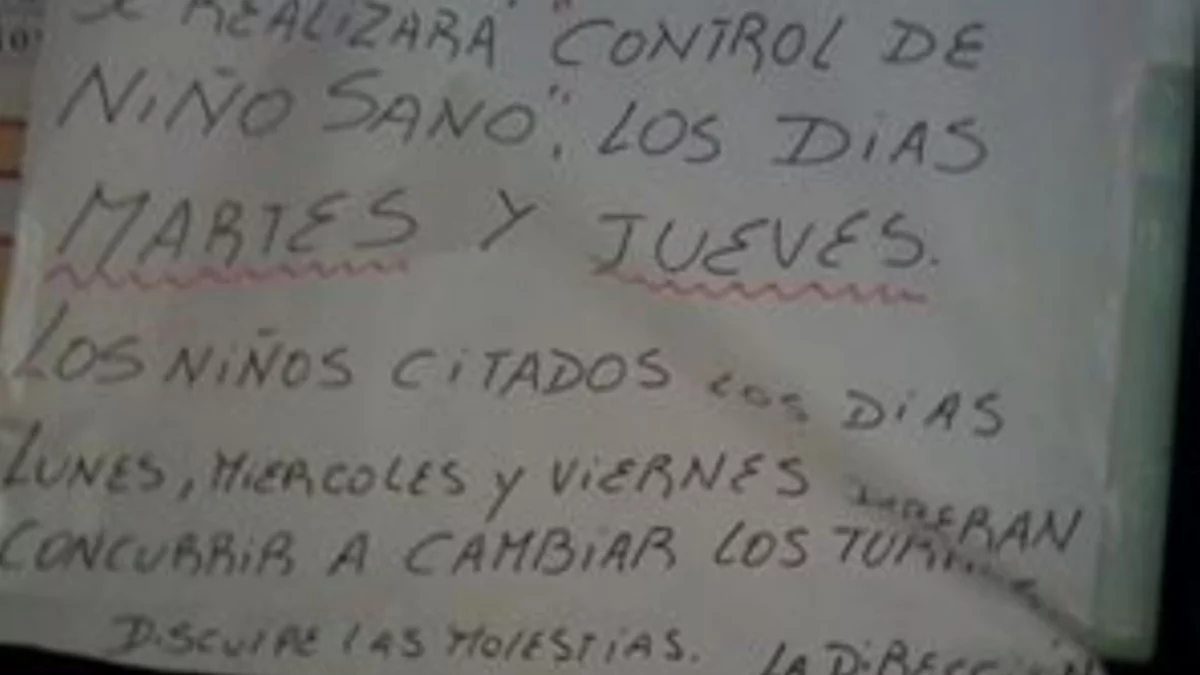 SE REALIZARA "CONTROL DE
NIÑO SANO", LOS DIAS
MARTES Y JUEVES.
LOS NIÑOS CITADOS LOS DIAS
LUNES, MIERCOLES Y VIERNES
CONCURRIR A CAMBIAR LOS
DISCULPE LAS MOLESTIAS. LA DIRECCIÓN